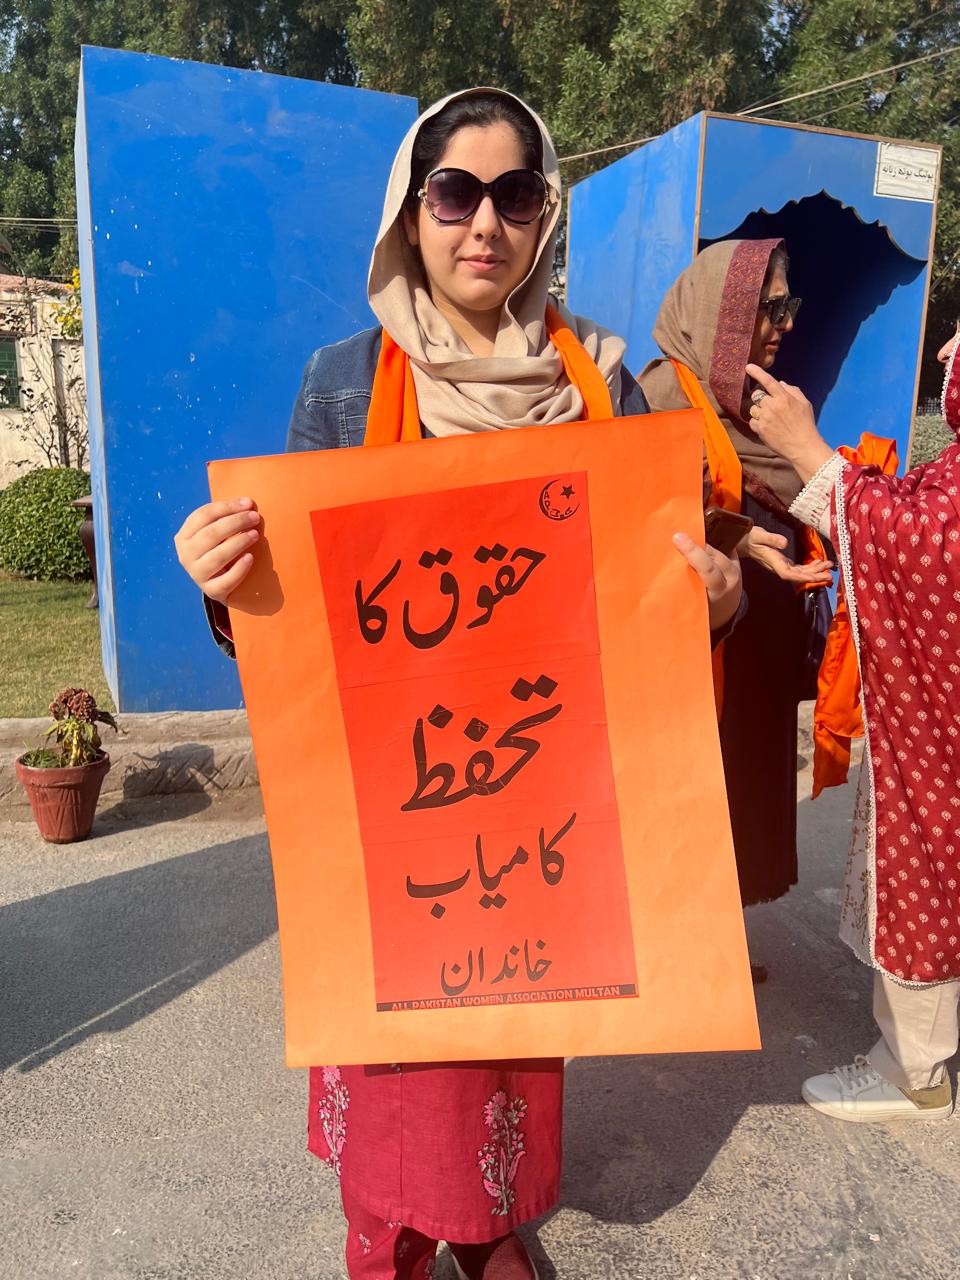 پولنگ بوتھ زنانہ
APWA
حقوق کا
تحفظ
کامیاب
خاندان
ALL PAKISTAN WOMEN ASSOCIATION MULTAN